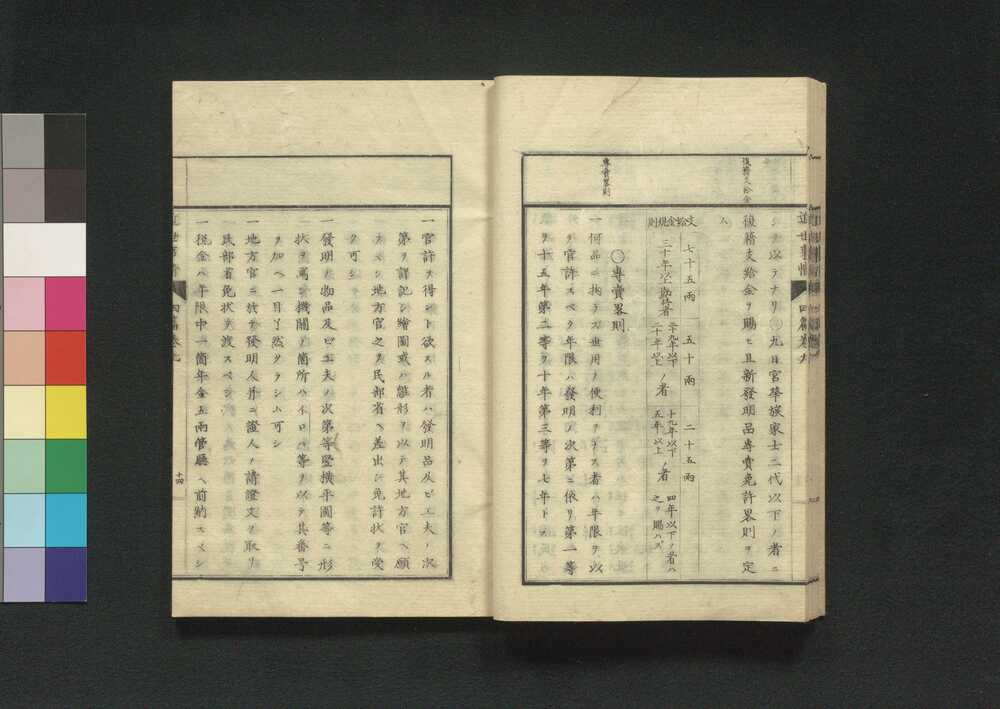 近世事情 四篇卷九
シテ以テナリ〇九日宮華族家士二代以下ノ者ニ
復籍支給金ヲ賜ヒ且新發明品專賣免許畧則ヲ定
ム
復籍支給金
支給金規則
七十五兩 五十兩 二十五兩
三十年以上勤仕ノ者 二十九年以下二十年以上ノ者 十九年以下五年以上ノ者 四年以下ノ者ハ之ヲ賜ハズ
專賣畧則
〇專賣畧則
一何品ニ拘ラズ世用ノ便利ヲナス者ハ年限ヲ以
テ官許スベク年限ハ發明ノ次第ニ依リ第一等
ヲ十五年第二等ヲ十年第三等ヲ七年トス
一官許ヲ得ント欲スル者ハ發明品及ビ工夫ノ次
第ヲ詳記シ繪圖或ハ雛形ヲ以テ其地方官ヘ願
出ベシ地方官之ヲ民部省ヘ差出シ免許狀ヲ受
ク可シ
一發明ノ物品及ビ工夫ノ次第等竪横平圖等ニ形
狀ヲ寫シ機關ノ箇所ハイロハ等ヲ以テ其番号
ヲ加ヘ一目了然タラシム可シ
一地方官ニ於テ發明人幷ニ證人ノ請證文ヲ取リ
民部省免狀ヲ渡スベシ
一税金ハ年限中一箇年金五兩管廳ヘ前納スベシ
四篇卷九
十四